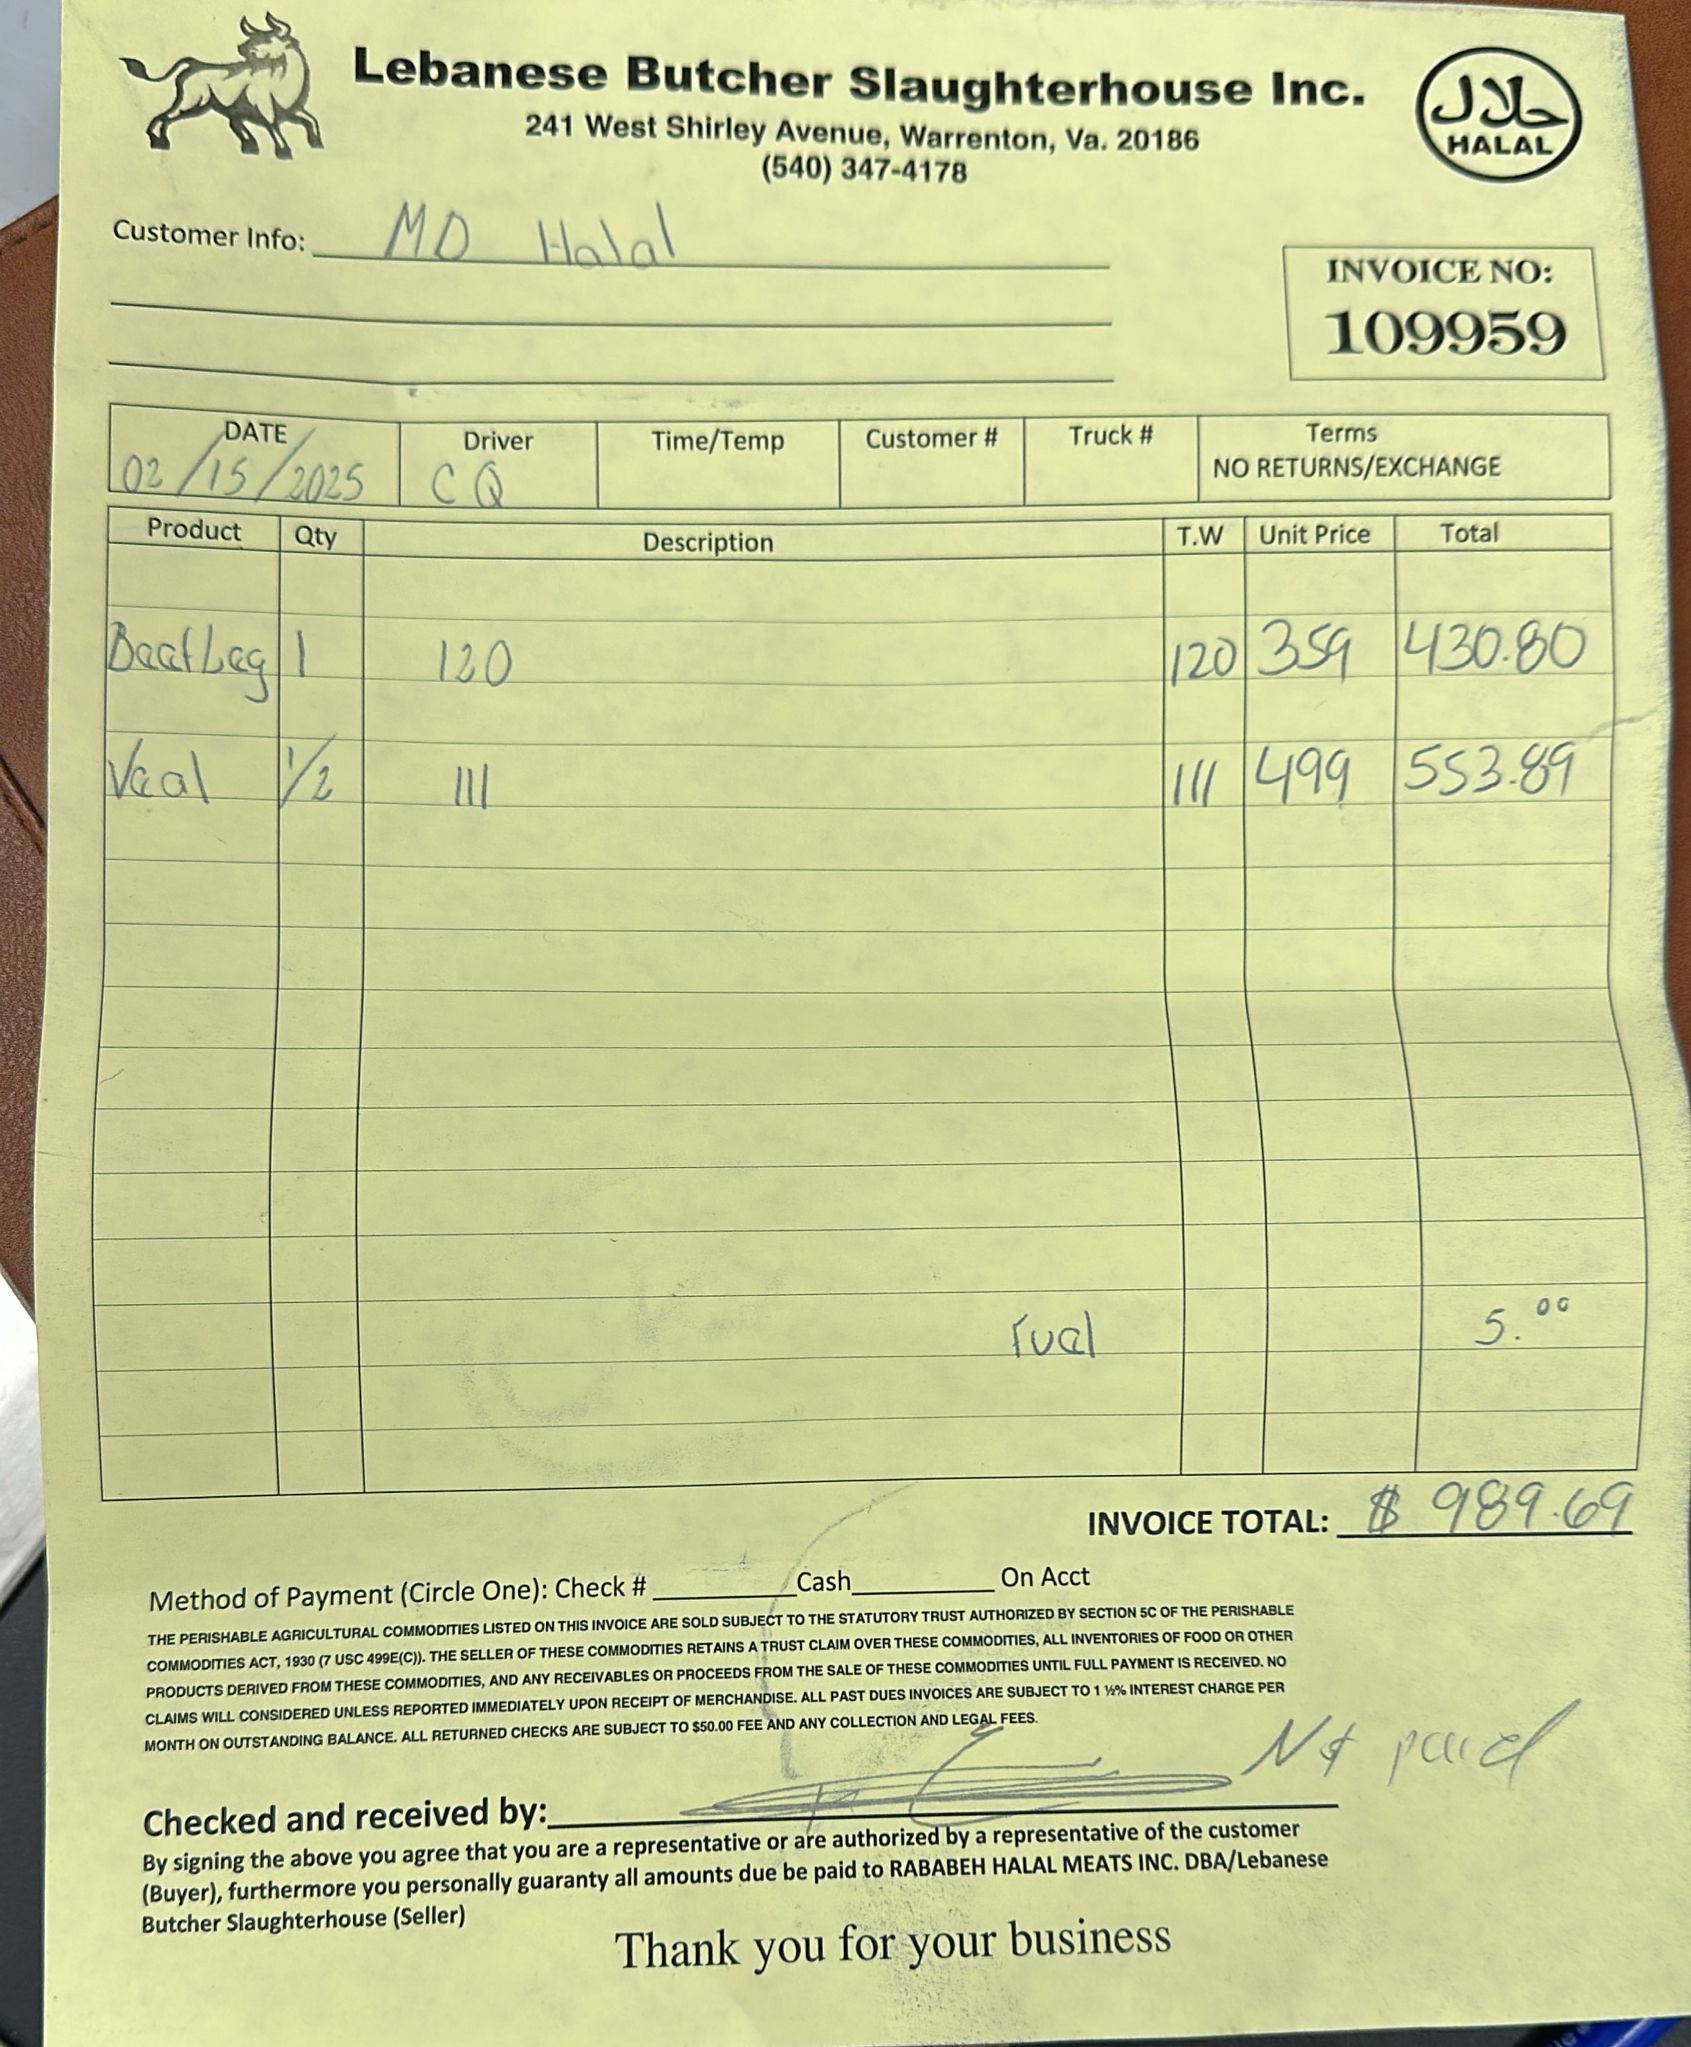 Lebanese Butcher Slaughterhouse Inc.
241 West Shirley Avenue, Warrenton, Va. 20186
(540) 347-4178
حلال
HALAL
Customer Info: MD Halal
INVOICE NO:
109959
DATE Driver Time/Temp Customer # Truck # Terms
02/15/2025 CQ NO RETURNS/EXCHANGE
Product Qty Description T.W Unit Price Total
Beef Leg 1 120 120 359 430.80
Veal 1/2 111 111 499 553.89
Fuel 5.00
INVOICE TOTAL: $ 989.69
Method of Payment (Circle One): Check # Cash On Acct
THE PERISHABLE AGRICULTURAL COMMODITIES LISTED ON THIS INVOICE ARE SOLD SUBJECT TO THE STATUTORY TRUST AUTHORIZED BY SECTION 5C OF THE PERISHABLE
COMMODITIES ACT, 1930 (7 USC 499E(C)). THE SELLER OF THESE COMMODITIES RETAINS A TRUST CLAIM OVER THESE COMMODITIES, ALL INVENTORIES OF FOOD OR OTHER
PRODUCTS DERIVED FROM THESE COMMODITIES, AND ANY RECEIVABLES OR PROCEEDS FROM THE SALE OF THESE COMMODITIES UNTIL FULL PAYMENT IS RECEIVED. NO
CLAIMS WILL CONSIDERED UNLESS REPORTED IMMEDIATELY UPON RECEIPT OF MERCHANDISE. ALL PAST DUES INVOICES ARE SUBJECT TO 1 ½% INTEREST CHARGE PER
MONTH ON OUTSTANDING BALANCE. ALL RETURNED CHECKS ARE SUBJECT TO $50.00 FEE AND ANY COLLECTION AND LEGAL FEES.
Not paid
Checked and received by:
By signing the above you agree that you are a representative or are authorized by a representative of the customer
(Buyer), furthermore you personally guaranty all amounts due be paid to RABABEH HALAL MEATS INC. DBA/Lebanese
Butcher Slaughterhouse (Seller)
Thank you for your business